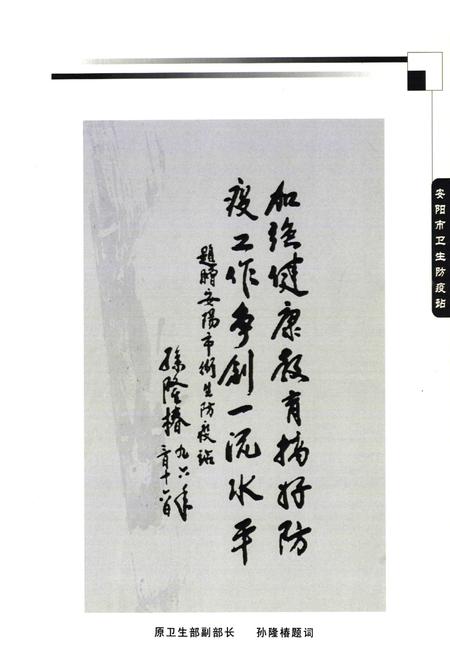 加强健康教育搞好防
疫工作争创一流水平
题赠安阳市衛生防疫站
孫隆椿 九六年
安阳市卫生防疫站
原卫生部副部长 孙隆椿题词